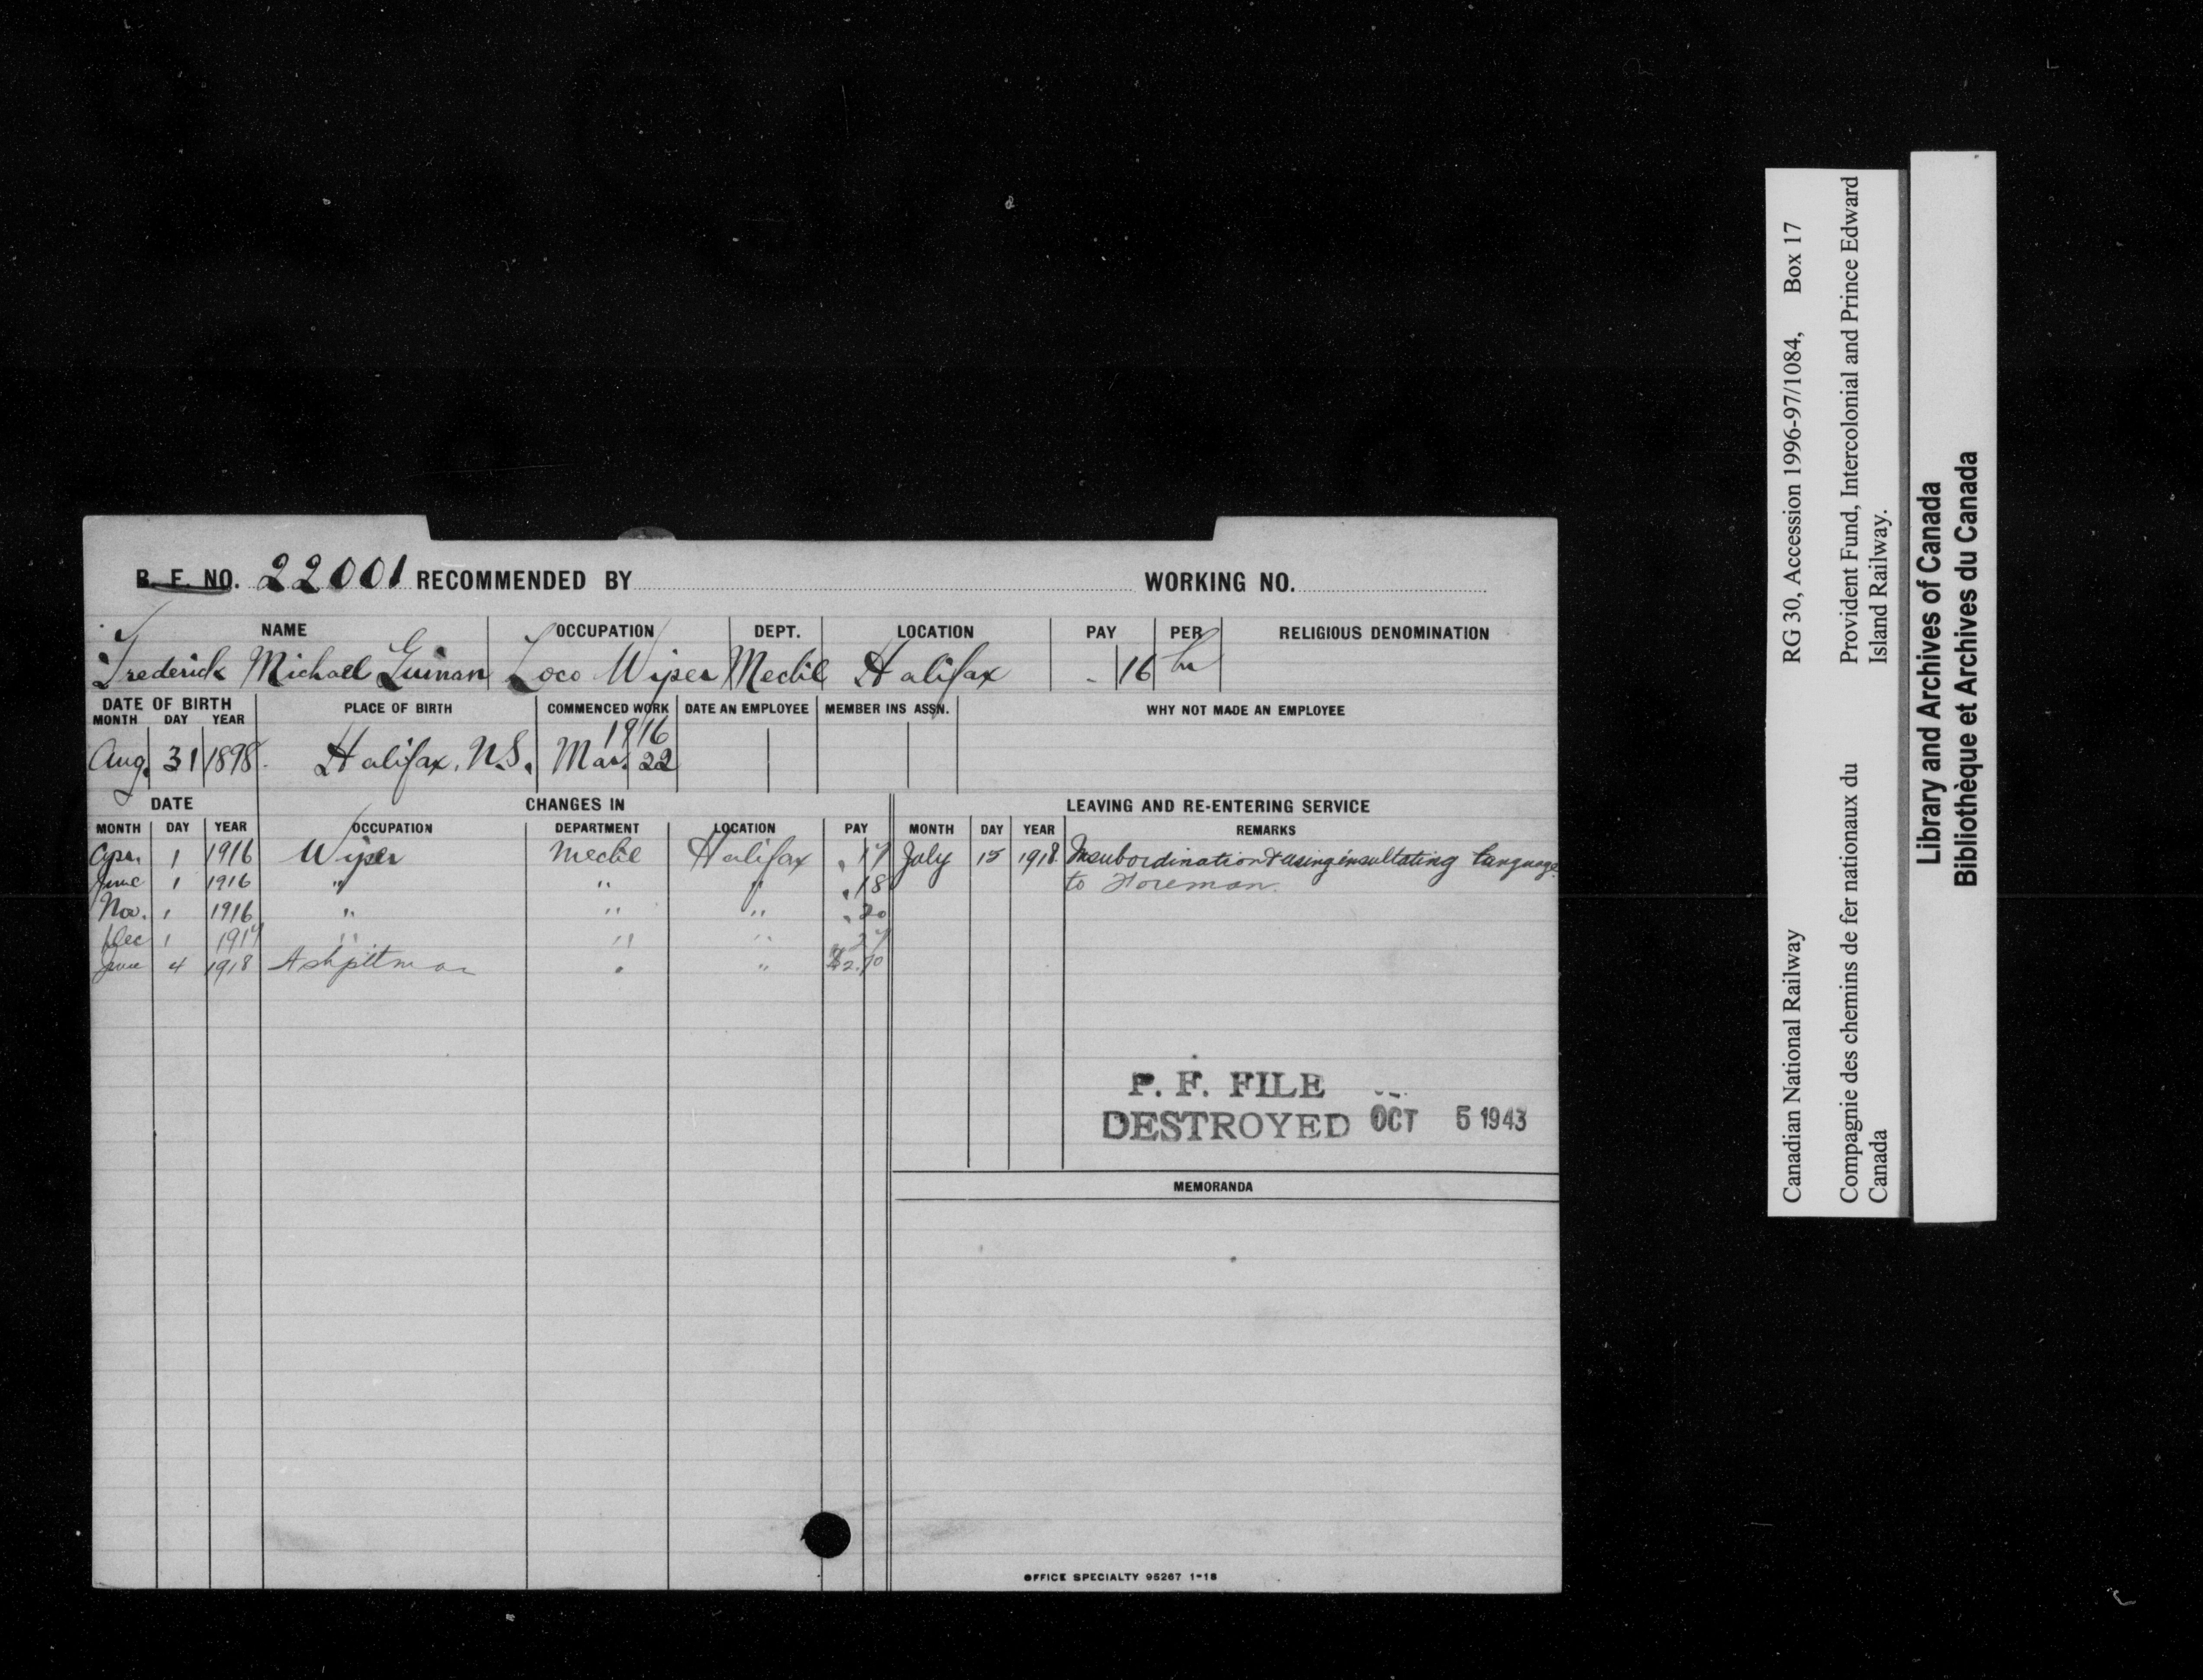 P. F. NO. 22001 RECOMMENDED BY WORKING NO.
NAME OCCUPATION DEPT. LOCATION PAY PER RELIGIOUS DENOMINATION
Frederick Michael Guinan Loco Wiper Mechl Halifax .16 hr
DATE OF BIRTH PLACE OF BIRTH COMMENCED WORK DATE AN EMPLOYEE MEMBER INS ASSN. WHY NOT MADE AN EMPLOYEE
MONTH DAY YEAR
1916
Aug. 31 1898. Halifax, N.S. Mar. 22
DATE CHANGES IN LEAVING AND RE-ENTERING SERVICE
MONTH DAY YEAR OCCUPATION DEPARTMENT LOCATION PAY MONTH DAY YEAR REMARKS
Apr. 1 1916 Wiper Mechl Halifax .17 July 15 1918 Insubordination & using insultating language
June 1 1916 " " " .18 to Foreman.
Nov. 1 1916 " " " .20
Dec 1 1917 " " " 27
June 4 1918 Ashpitman " "
P. F. FILE
DESTROYED OCT 5 1943
MEMORANDA
OFFICE SPECIALTY 95267 1-18
Canadian National Railway RG 30, Accession 1996-97/1084, Box 17
Compagnie des chemins de fer nationaux du Canada
Provident Fund, Intercolonial and Prince Edward Island Railway.
Library and Archives of Canada
Bibliothèque et Archives du Canada